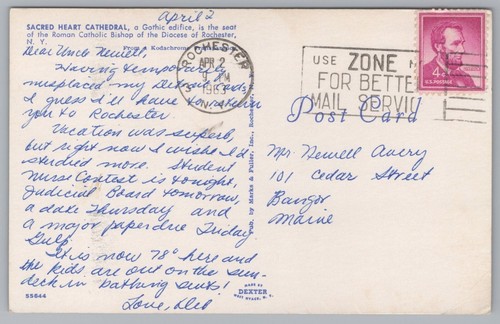 April 2
SACRED HEART CATHEDRAL, a Gothic edifice, is the seat
of the Roman Catholic Bishop of the Diocese of Rochester,
N. Y.
From a Kodachrome
Dear Uncle Newell,
Having temporarily
misplaced my Detroit ads
I guess I'll have to return
you to Rochester.
Vacation was superb,
but right now I wish I'd
studied more. Student
Nurse Contest is tonight,
Judicial Board tomorrow,
a date Thursday and
a major paper due Friday
Gulp.
It is now 78° here and
the kids are out on the sun-
deck in bathing suits!
Love, Deb
55644
Pub. by Manks & Fuller, Inc., Rochester,
MADE BY
DEXTER
WEST NYACK, N. Y.
ROCHESTER
APR 2
9 PM
1963
N.Y.
USE ZONE
FOR BETTER
MAIL SERVICE
4¢
U.S. POSTAGE
Post Card
Mr Newell Avery
101 Cedar Street
Bangor
Maine